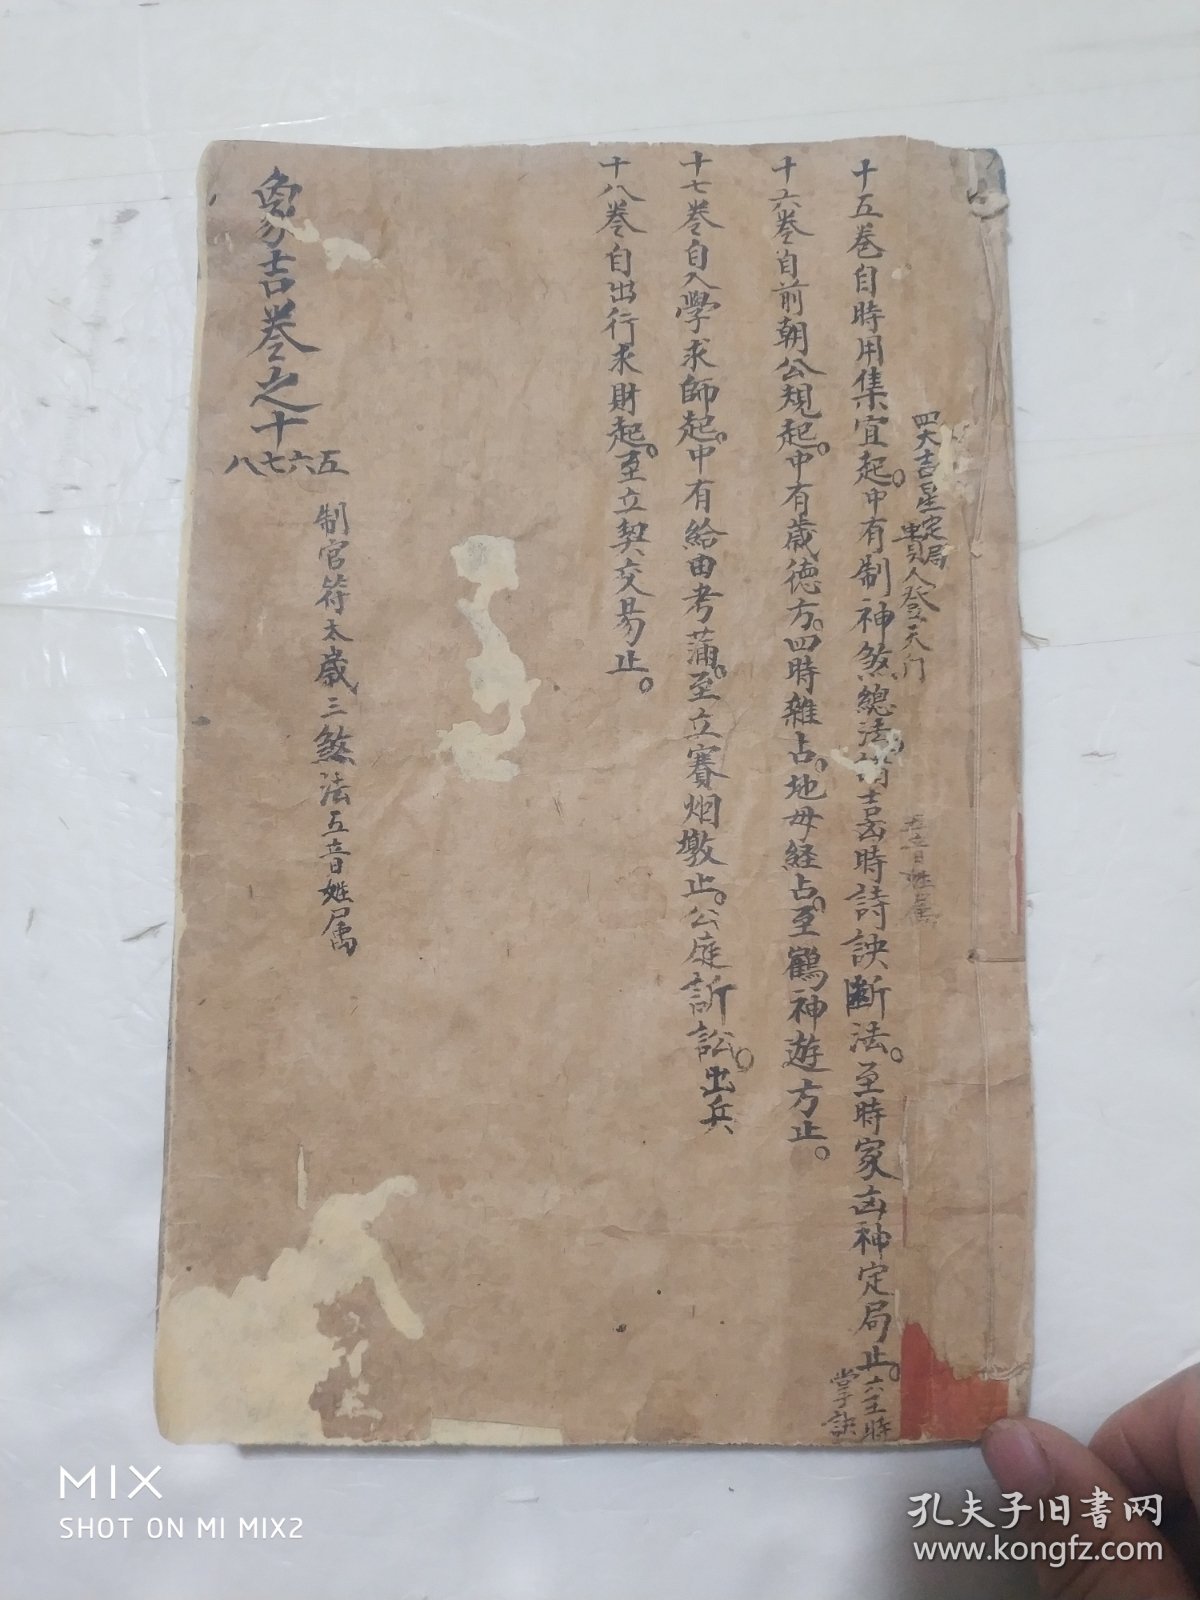 四大吉星定局
貴人登天门
五音姓属
十五卷自時用集宜起。中有制神煞總法。諸吉凶時詩訣斷法。至時家凶神定局止。六壬時
掌訣
十六卷自前朝公規起。中有歲德方。四時雜占。地母経占。至鶴神遊方止。
十七卷自入學求師起。中有給由考滿。至立寨烟墩止。公庭訴訟。出兵
十八卷自出行求財起。至立契交易止。
象吉卷之十
五六七八
制官符太歲三煞法五音姓属
MIX
SHOT ON MI MIX2
孔夫子旧书网
www.kongfz.com